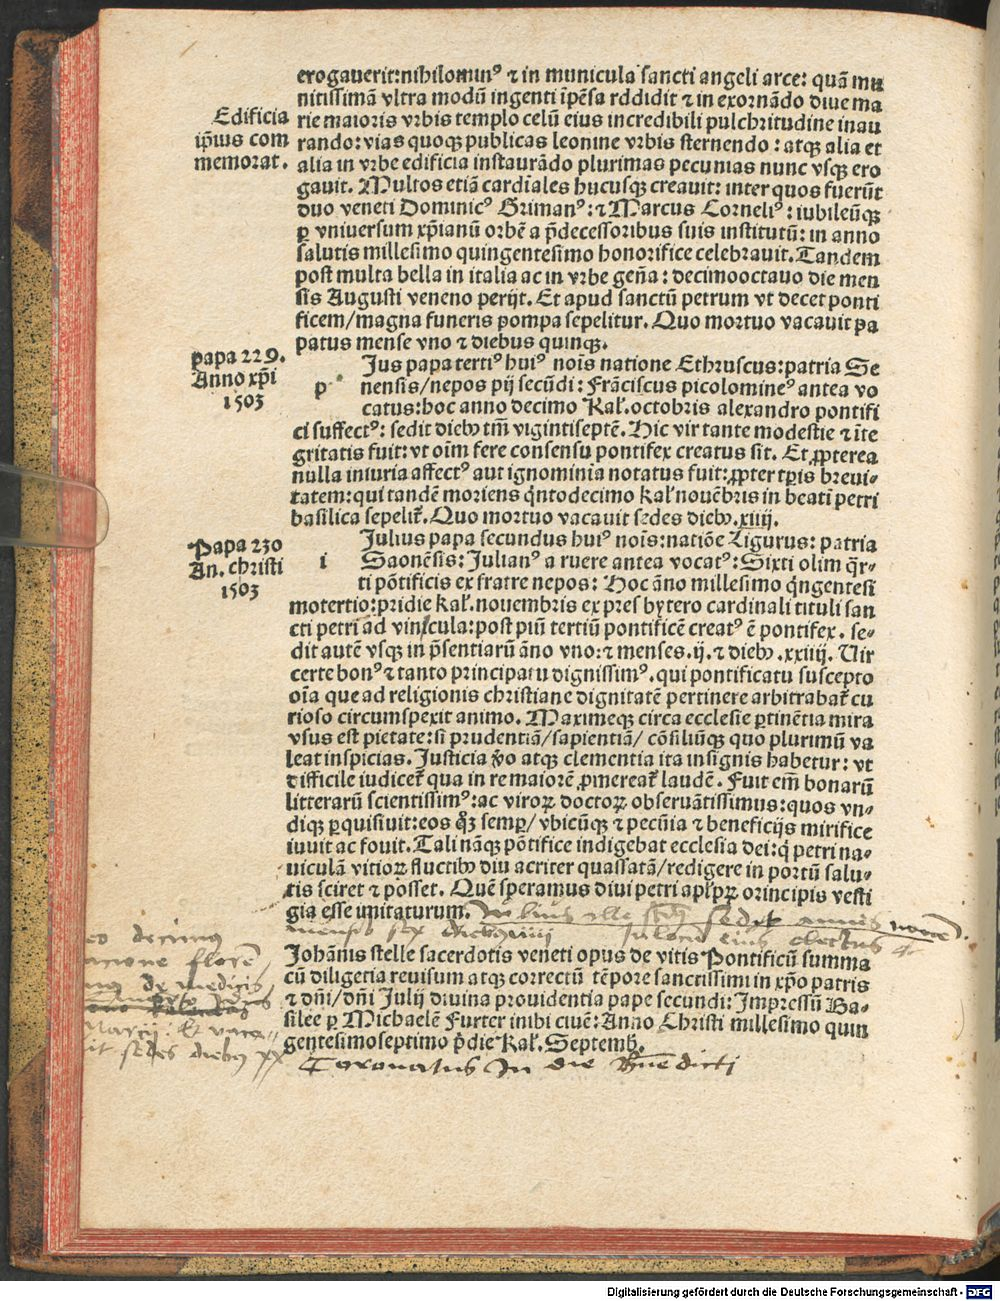 erogauerit:nihilominꝰ ⁊ in municula sancti angeli arce: quā mu
nitissimā vltra modū ingenti īpēsa rddidit ⁊ in exornādo diue ma
Edificia
rie maioris vrbis templo celū eius incredibili pulchritudine inau
ip̄ius com
rando:vias quoqꝫ publicas leonine vrbis sternendo : atqꝫ alia et
memorat.
alia in vrbe edificia instaurādo plurimas pecunias nunc vsqꝫ ero
gauit. Multos etiā cardiales hucusqꝫ creauit: inter quos fuerūt
duo veneti Dominicꝰ Grimanꝰ:⁊ Marcus Corneliꝰ: iubileūqꝫ
ꝑ vniuersum xp̄ianū orbē a p̄decessoribus suis institutū: in anno
salutis millesimo quingentesimo honorifice celebrauit. Tandem
post multa bella in italia ac in vrbe geña: decimooctauo die men
sis Augusti veneno perijt. Et apud sanctū petrum vt decet ponti
ficem/magna funeris pompa sepelitur. Quo mortuo vacauit pa
patus mense vno ⁊ diebus quinqꝫ.
papa 229.
Anno xp̄i
1503
Ius papa tertiꝰ huiꝰ nois̄ natione Ethruscus:patria Se
p nensis/nepos pij secūdi: Frāciscus picolomineꝰ antea vo
catus:hoc anno decimo Kal̄.octobris alexandro pontifi
ci suffectꝰ: sedit diebꝫ tm̄ vigintiseptē. Hic vir tante modestie ⁊ īte
gritatis fuit: vt oīm fere consensu pontifex creatus sit. Et ꝓpterea
nulla iniuria affectꝰ aut ignominia notatus fuit:ꝓpter tꝑis breui-
tatem:qui tandē moriens q̄ntodecimo kal̄ nouēbris in beati petri
basilica sepelit̄. Quo mortuo vacauit sedes diebꝫ.xiiij.
Papa 230
An. christi
1503
Julius papa secundus huiꝰ nois̄:natiōe Ligurus: patria
i Saonēsis: Julianꝰ a ruere antea vocatꝰ: Sixti olim q̄r-
ti pōtificis ex fratre nepos: Hoc āno millesimo q̄ngentesi
motertio:pridie kal̄.nouembris ex presbytero cardinali tituli san
cti petri ad vincula:post piū tertiū pontificē creatꝰ ē pontifex. se-
dit autē vsqꝫ in p̄sentiarū āno vno:⁊ menses.ij.⁊ diebꝫ.xxiiij. Vir
certe bonꝰ ⁊ tanto principatu dignissimꝰ.qui pontificatu suscepto
oīa que ad religionis christiane dignitatē pertinere arbitrabat̄ cu
rioso circumspexit animo. Maximeqꝫ circa ecclesie ꝑtinētia mira
vsus est pietate:si prudentiā/sapientiā/ cōsiliūqꝫ quo plurimū va
leat inspicias. Justicia ꝟo atqꝫ clementia ita insignis habetur: vt
difficile iudicet̄ qua in re maiorē ꝓmereat̄ laudē. Fuit em̄ bonarū
litterarū scientissimꝰ:ac viroꝝ doctoꝝ obseruātissimus:quos vn-
diqꝫ ꝑquisiuit:eos qꝫ semꝑ/ vbicūqꝫ ⁊ pecūia ⁊ beneficijs mirifice
iuuit ac fouit. Tali nāqꝫ pōtifice indigebat ecclesia dei:q̄ petri na-
uiculā vitioꝝ fluctibꝫ diu acriter quassatā/redigere in portū salu-
tis sciret ⁊ posset. Quē speramus diui petri ap̄lꝝ principis vesti
gia esse imitaturum. Iulius ille scd̄s sedit annis novē
mense sex diebꝫ iiii in locū eius electus
Johānis stelle sacerdotis veneti opus de vitis Pontificū summa
cū diligētia reuisum atqꝫ correctū tēpore sanctissimi in xp̄o patris
⁊ dñi/dñi Julij diuina prouidentia pape secundi: Impressū Ba-
silee ꝑ Michaelē Furter inibi ciuē: Anno Christi millesimo quin
gentesimoseptimo p̄die Kal̄. Septemb̄.
eo decimus
acione floren
de medicis
Marcij Et vaca
it sedes diebꝫ xx
Coronatus In die Benedicti
Digitalisierung gefördert durch die Deutsche Forschungsgemeinschaft - DFG